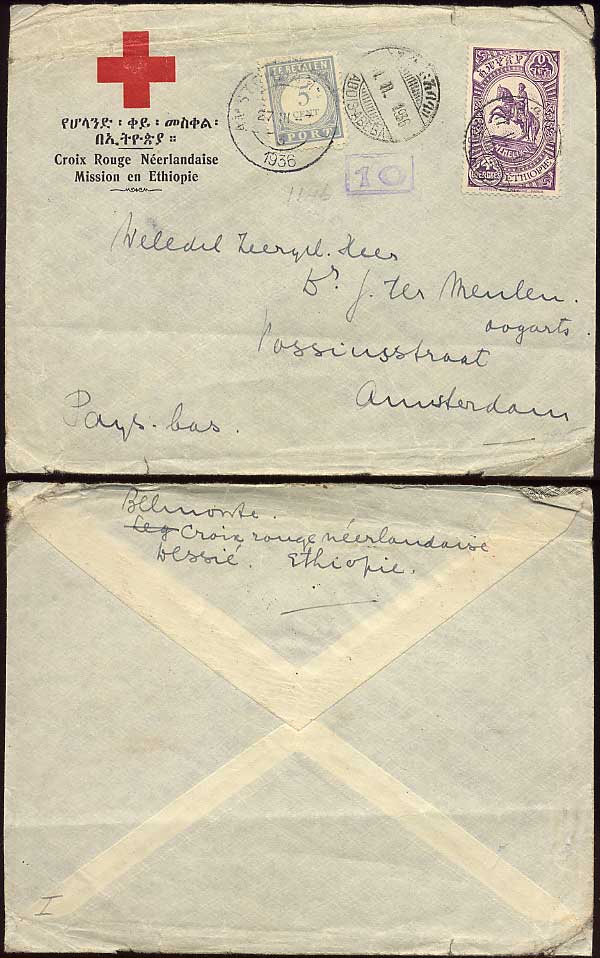 የሆላንድ ፡ ቀይ ፡ መስቀል ፡
በኢትዮጵያ ።
Croix Rouge Néerlandaise
Mission en Ethiopie
TE BETALEN
5
CENT
PORT
1936
ADDIS ABEBA
1936
10
ETHIOPIE
Weledel Zeergel. Heer
Dr J. ter Meulen.
oogarts.
Vossiusstraat
Amsterdam
Pays-bas.
Belmonte.
Croix rouge néerlandaise
Dessié. Ethiopie.
I